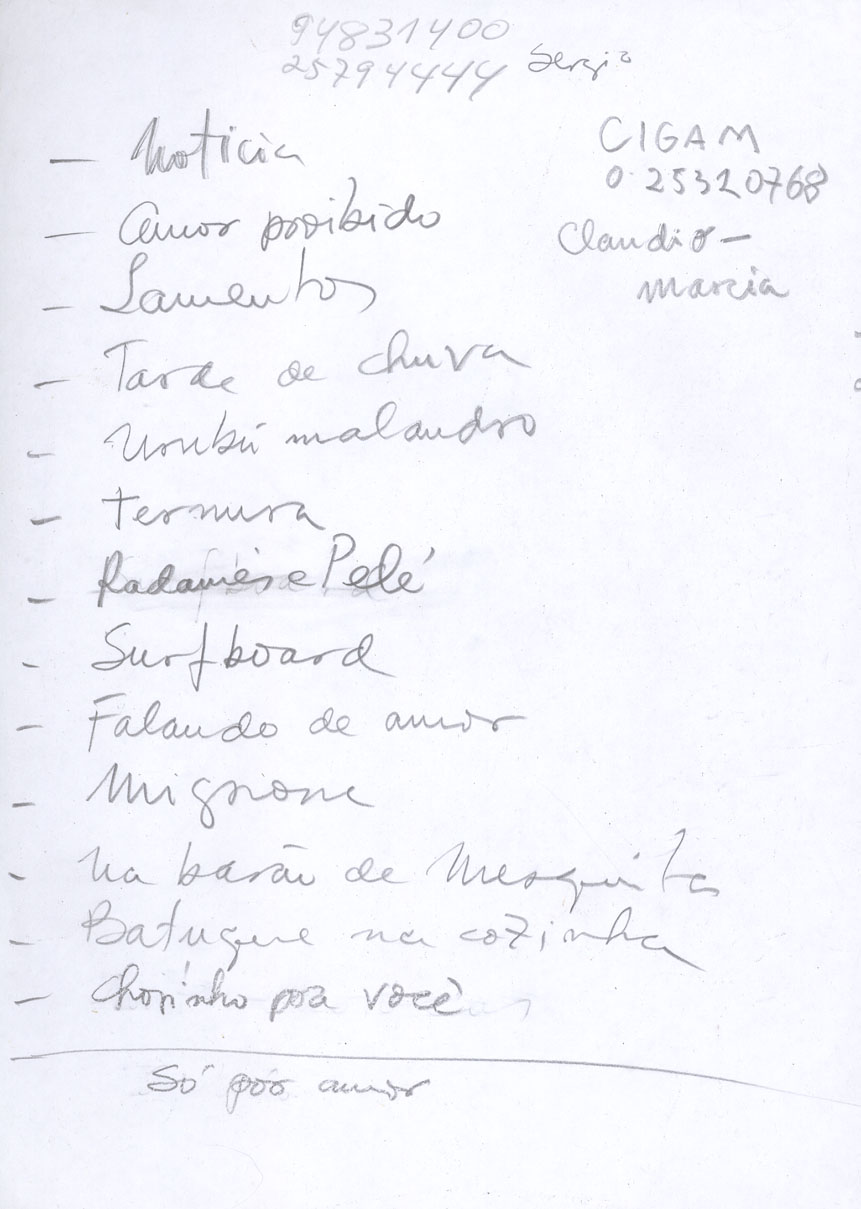 94831400
25794444 Sergio
CIGAM
0 25320768
Claudio -
marcia
- Noticia
- Amor proibido
- Lamentos
- Tarde de chuva
- Urubú malandro
- Ternura
- Radamés e Pelé
- Surfboard
- Falando de amor
- Mignone
- Na barão de Mesquita
- Batuque na cozinha
- Chorinho pra você
Só por amor